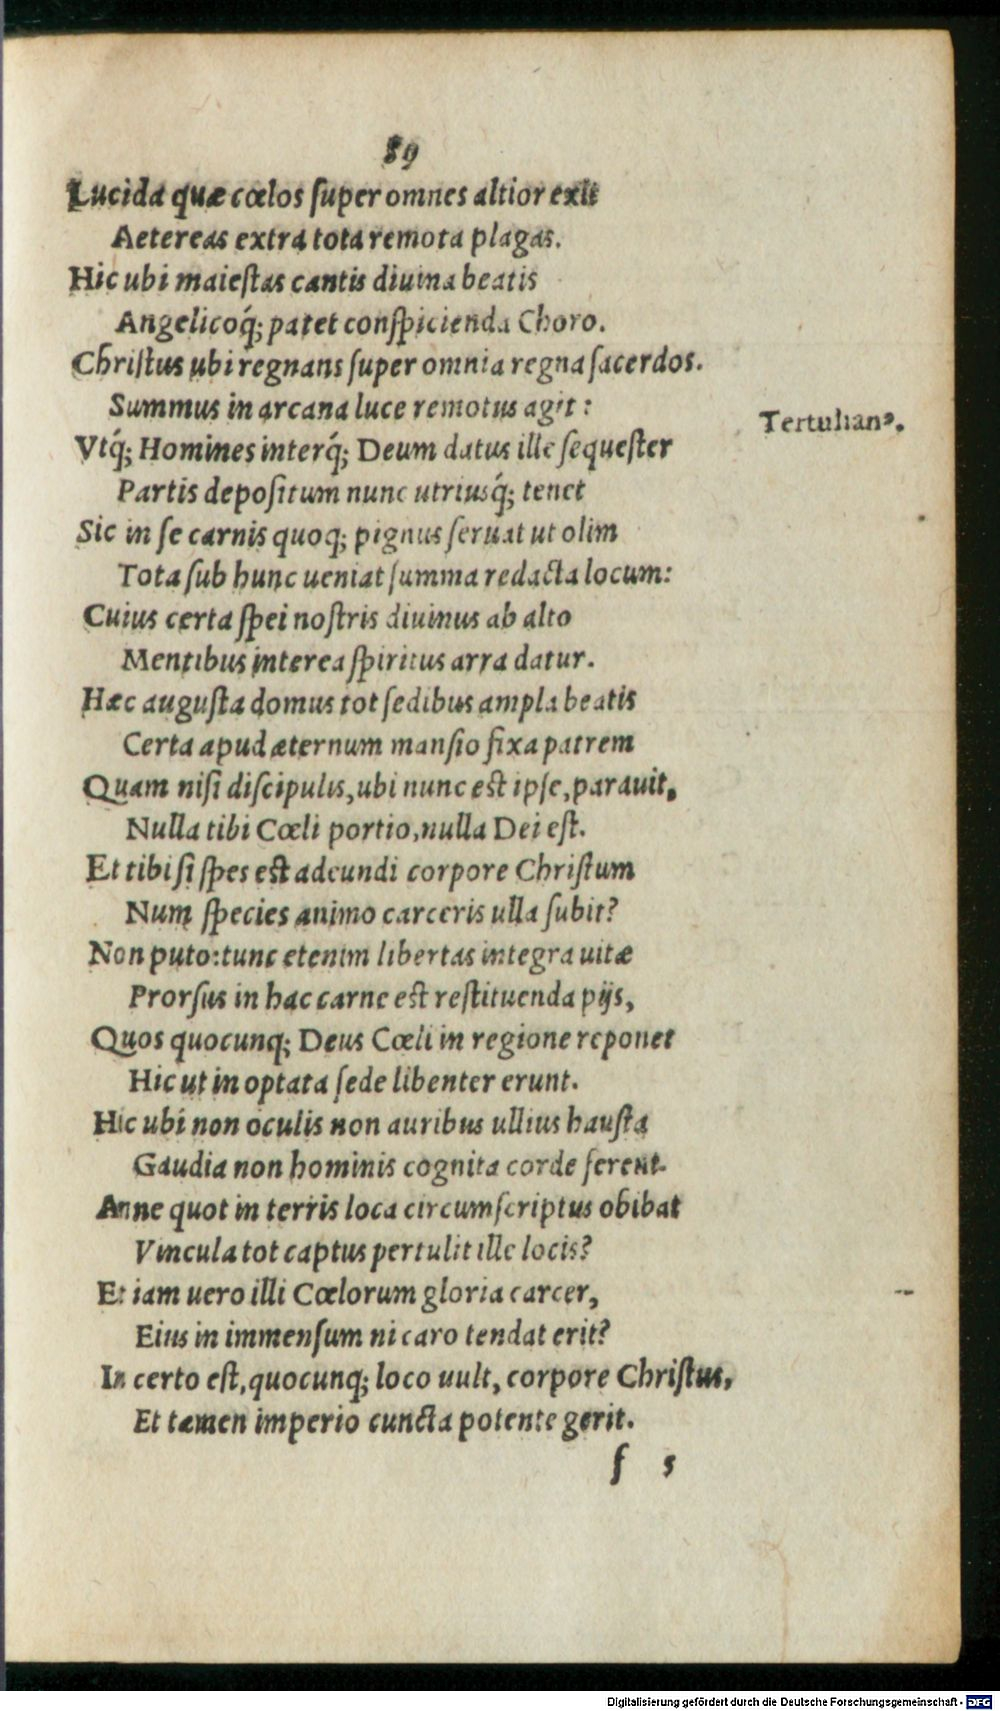 89
Lucida quæ cœlos ſuper omnes altior exit
Aetereas extra tota remota plagas.
Hic ubi maieſtas cantis diuina beatis
Angelicoq́; patet conſpicienda Choro.
Chriſtus ubi regnans ſuper omnia regna ſacerdos.
Summus in arcana luce remotus agit:
Vtq́; Homines interq́; Deum datus ille ſequeſter
Tertulianꝰ.
Partis depoſitum nunc utriusq́; tenet
Sic in ſe carnis quoq; pignus ſeruat ut olim
Tota ſub hunc ueniat ſumma redacta locum:
Cuius certa ſpei noſtris diuinus ab alto
Mentibus interea ſpiritus arra datur.
Hæc auguſta domus tot ſedibus ampla beatis
Certa apud æternum manſio fixa patrem
Quam niſi diſcipulis, ubi nunc eſt ipſe, parauit,
Nulla tibi Cœli portio, nulla Dei eſt.
Et tibi ſi ſpes eſt adeundi corpore Chriſtum
Num ſpecies animo carceris ulla ſubit?
Non puto: tunc etenim libertas integra uitæ
Prorſus in hac carne eſt reſtituenda pijs,
Quos quocunq; Deus Cœli in regione reponet
Hic ut in optata ſede libenter erunt.
Hic ubi non oculis non auribus ullius hauſta
Gaudia non hominis cognita corde ferent.
Anne quot in terris loca circumſcriptus obibat
Vincula tot captus pertulit ille locis?
Et iam uero illi Cœlorum gloria carcer,
Eius in immenſum ni caro tendat erit?
In certo eſt, quocunq; loco uult, corpore Chriſtus,
Et tamen imperio cuncta potente gerit.
f 5
Digitalisierung gefördert durch die Deutsche Forschungsgemeinschaft - DFG